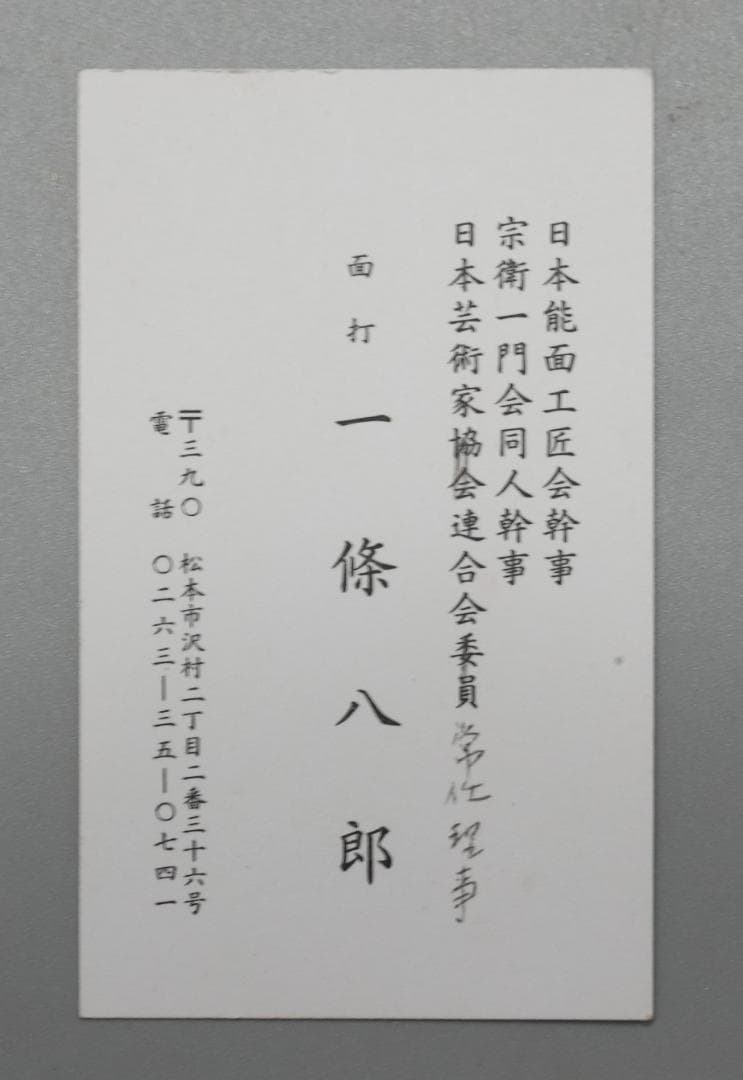 日本能面工匠会幹事
宗衛一門会同人幹事
日本芸術家協会連合会委員常任理事
面打
一條八郎
〒三九〇 松本市沢村二丁目二番三十六号
電話 〇二六三ー三五ー〇七四一